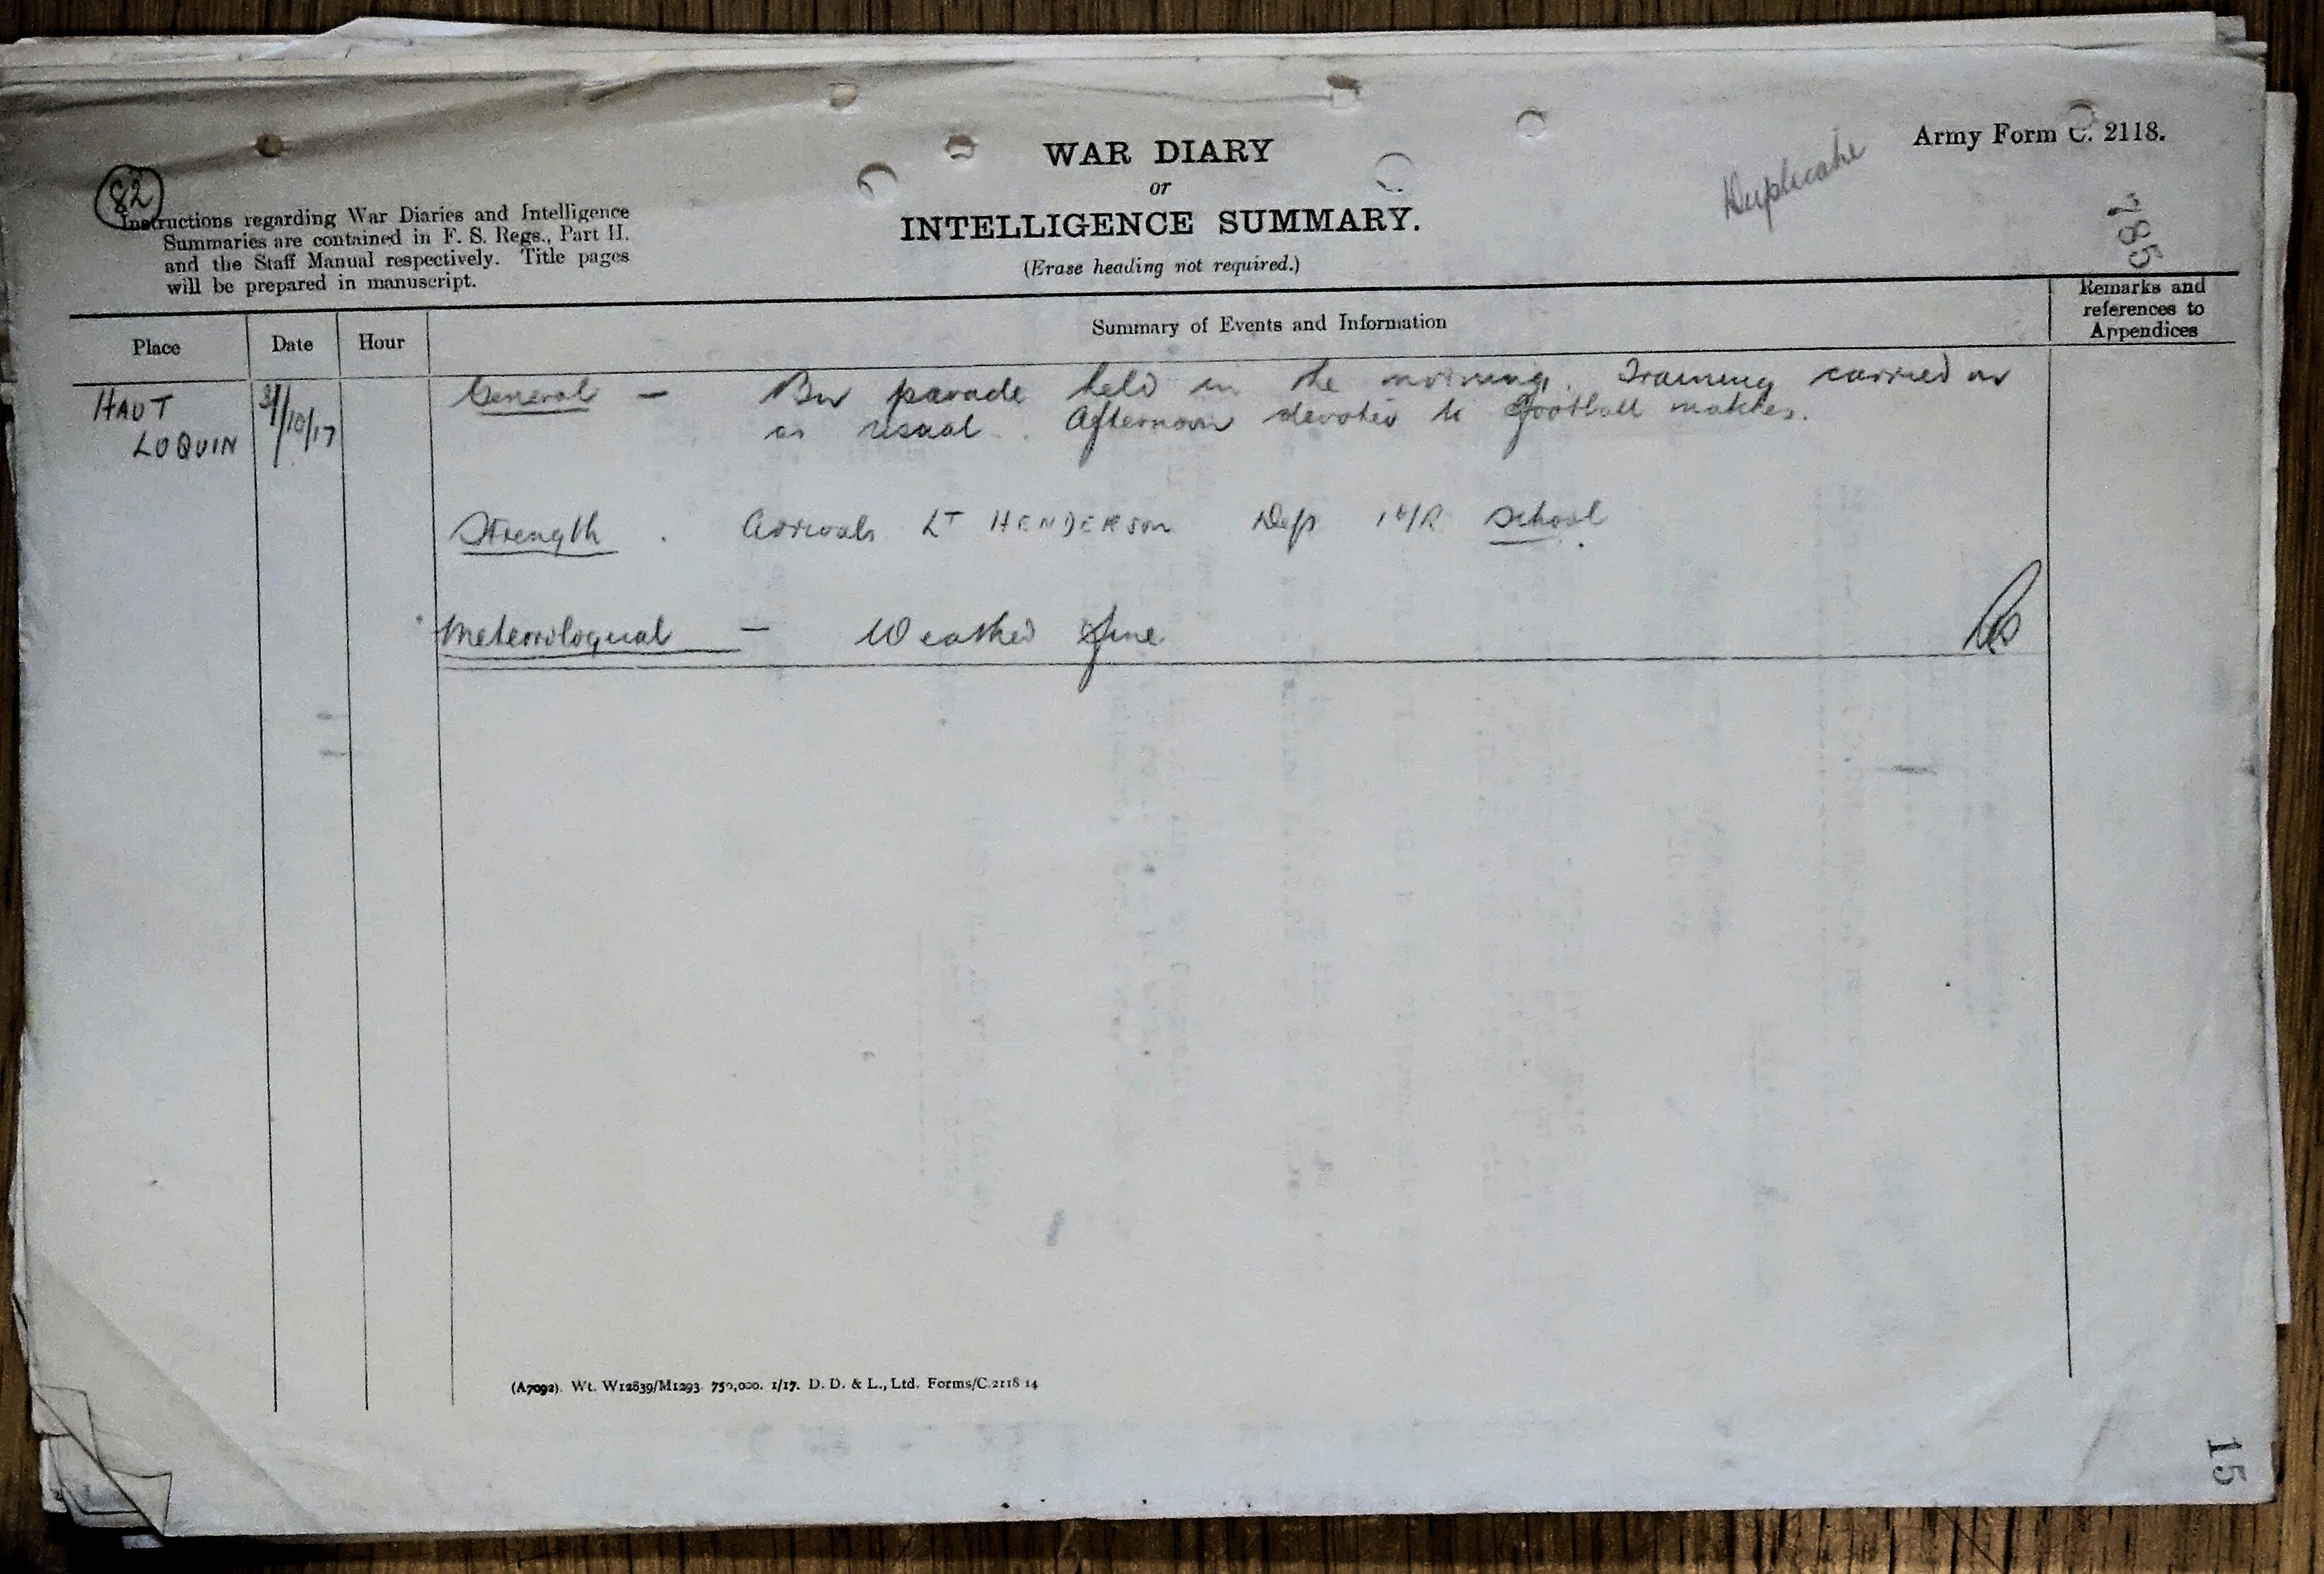 82
Instructions regarding War Diaries and Intelligence
Summaries are contained in F. S. Regs., Part II.
and the Staff Manual respectively. Title pages
will be prepared in manuscript.
WAR DIARY
or
INTELLIGENCE SUMMARY.
(Erase heading not required.)
Duplicate
Army Form C. 2118.
785
Place
Date
Hour
Summary of Events and Information
Remarks and
references to
Appendices
HAUT
LOQUIN
31/10/17
General — Bn parade held in the morning. Training carried on
as usual. Afternoon devoted to football matches.
Strength. Arrivals LT HENDERSON Dep 1 O/R School.
Meteorological — Weather fine
(A7092). Wt. W12839/M1293. 750,000. 1/17. D. D. & L., Ltd. Forms/C.2118/14
15